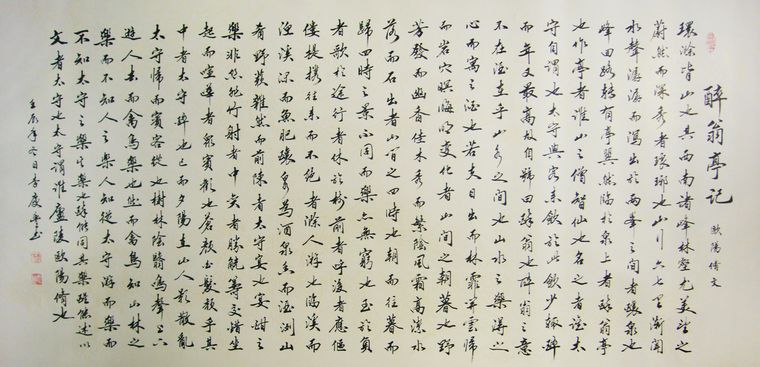 醉翁亭记
歐陽脩文
環滁皆山也其西南諸峰林壑尤美望之
蔚然而深秀者瑯琊也山行六七里漸聞
水聲潺潺而瀉出於兩峯之間者釀泉也
峰回路轉有亭翼然臨於泉上者醉翁亭
也作亭者誰山之僧智仙也名之者誰太
守自謂也太守與客來飲於此飲少輒醉
而年又最高故自號曰醉翁也醉翁之意
不在酒在乎山水之間也山水之樂得之
心而寓之酒也若夫日出而林霏開雲歸
而岩穴暝晦明變化者山間之朝暮也野
芳發而幽香佳木秀而繁陰風霜高潔水
落而石出者山間之四時也朝而往暮而
歸四時之景不同而樂亦無窮也至於負
者歌於途行者休於樹前者呼後者應傴
僂提攜往來而不絕者滁人游也臨溪而
漁溪深而魚肥釀泉為酒泉香而酒洌山
肴野蔌雜然而前陳者太守宴也宴酣之
樂非絲非竹射者中弈者勝觥籌交錯坐
起而喧譁者眾賓歡也蒼顏白髮頹乎其
中者太守醉也已而夕陽在山人影散亂
太守歸而賓客從也樹林陰翳鳴聲上下
遊人去而禽鳥樂也然而禽鳥知山林之
樂而不知人之樂人知從太守游而樂而
不知太守之樂其樂也醉能同其樂醒能述以
文者太守也太守謂誰廬陵歐陽脩也
壬辰年冬日李慶